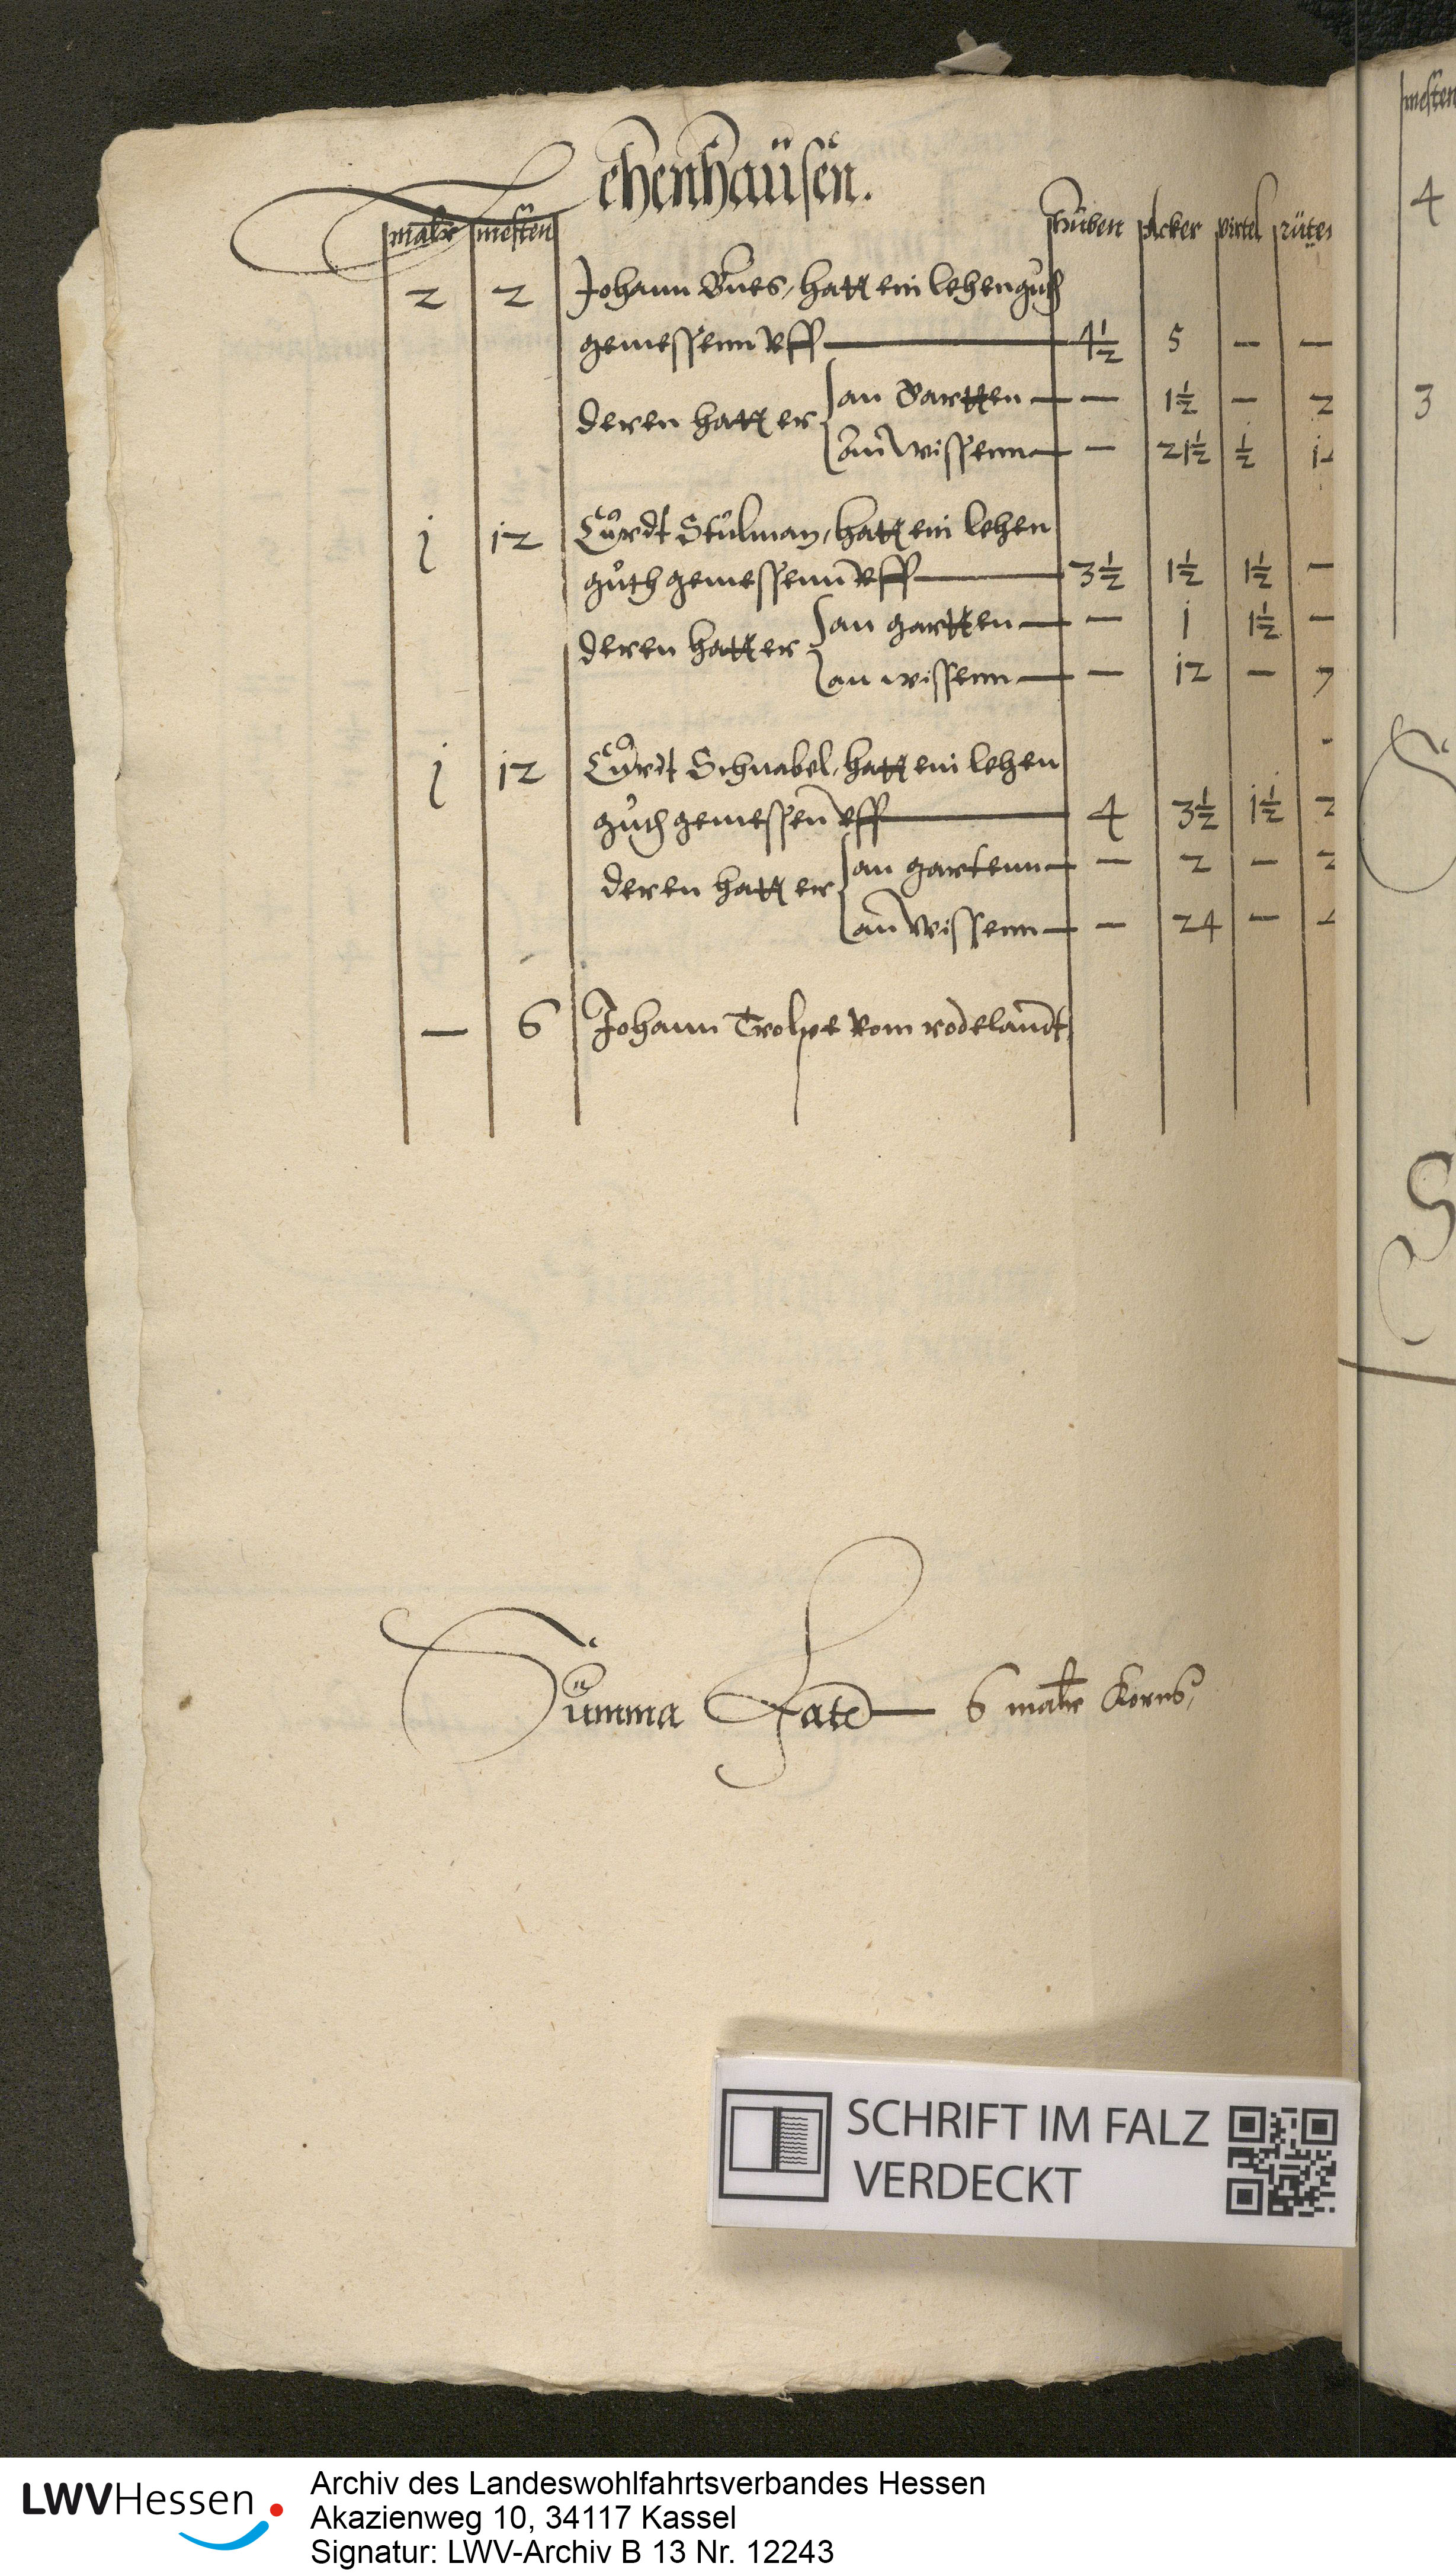 Lehenhaüsen.
malter mesten hüben Acker virtel rüte
2 2 Johann hatt ein lehenguth
gemessenn uff — 4½ 5 — —
deren hatt er an Gartten — — 1½ — 2
an wissenn — — 21½ ½
j 12 Curdt Stulman, hatt ein lehen
guth gemessenn uff — 3½ 1½ 1½ —
deren hatt er an gartten — — 1 1½ —
an wissenn — — 12 — 7
j 12 Curdt Schnabel, hatt ein lehen
guth gemessen uff — 4 3½ 1½ 2
deren hatt er an gartenn — — 2 — 2
an wissenn — — 24 —
— 6 Johann vom rodelandt,
Summa Late — 6 malter Korns,
mesten
4
3
SCHRIFT IM FALZ
VERDECKT
LWVHessen
Archiv des Landeswohlfahrtsverbandes Hessen
Akazienweg 10, 34117 Kassel
Signatur: LWV-Archiv B 13 Nr. 12243